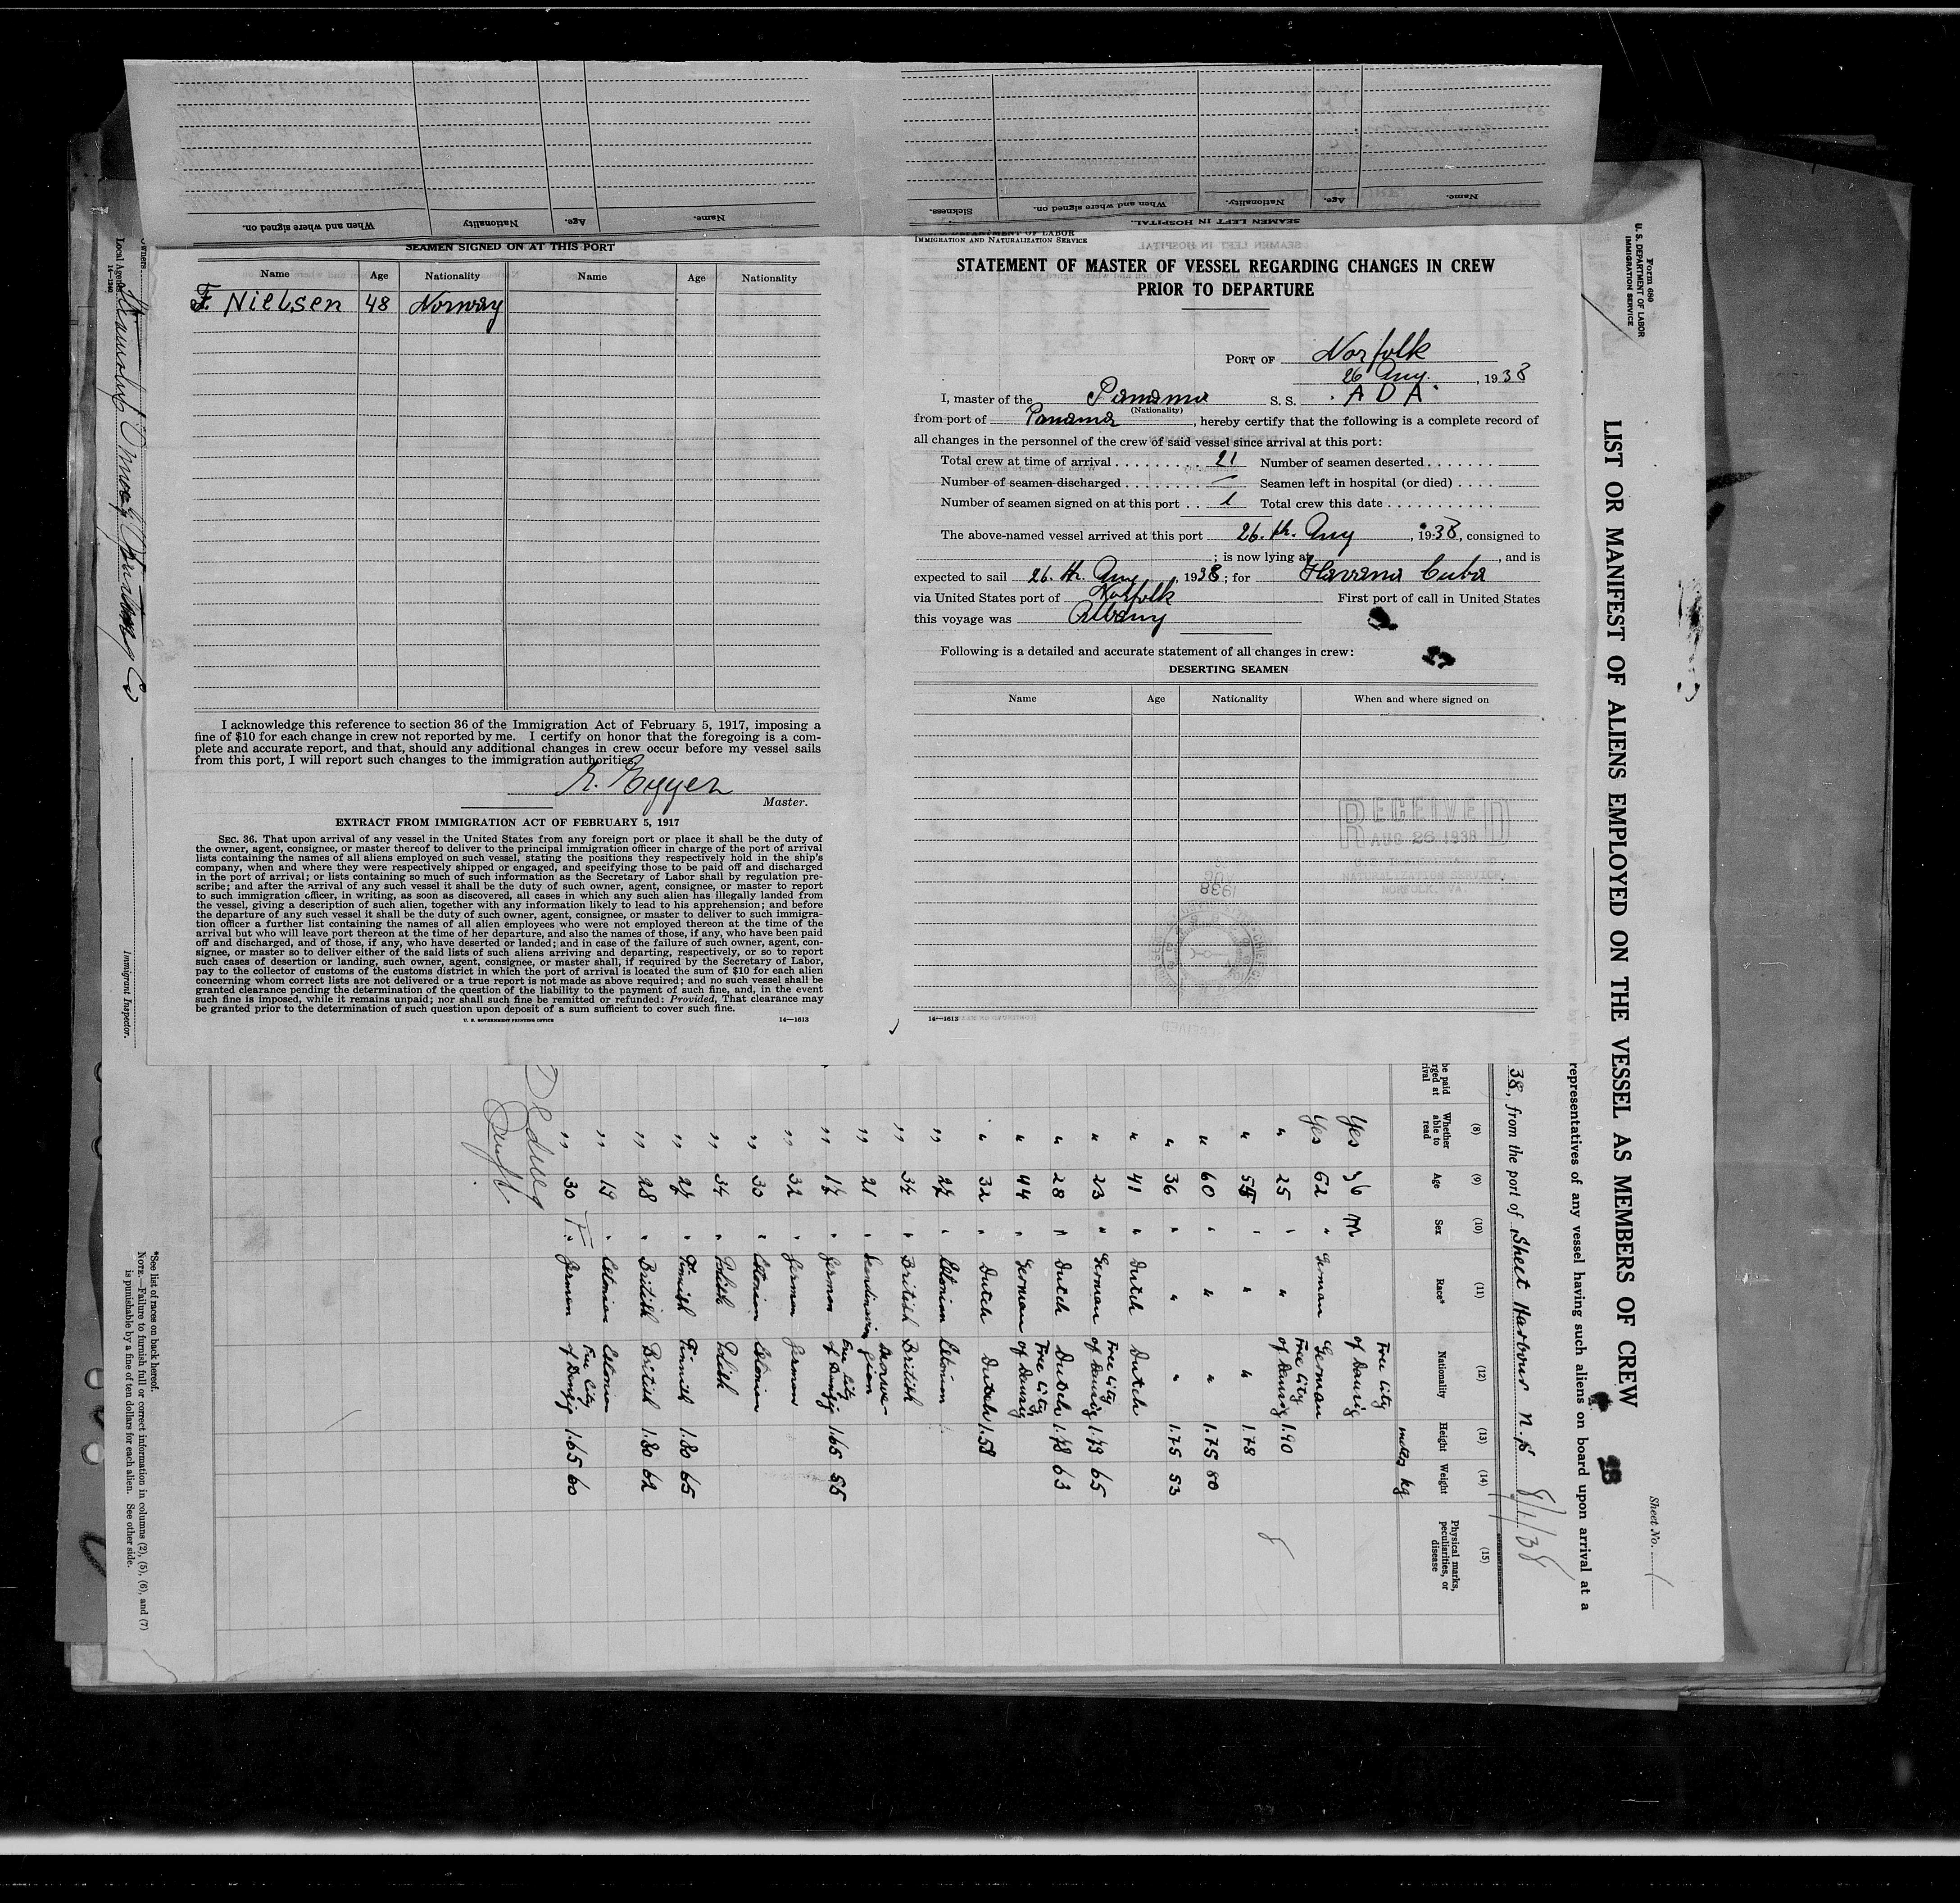 When and where signed on.
Nationality
Age.
Name.
Sickness.
When and where signed on.
Nationality.
Age.
Name.
SEAMEN LEFT IN HOSPITAL.
SEAMEN SIGNED ON AT THIS PORT
Name Age Nationality Name Age Nationality
F. Nielsen 48 Norway
I acknowledge this reference to section 36 of the Immigration Act of February 5, 1917, imposing a
fine of $10 for each change in crew not reported by me. I certify on honor that the foregoing is a com-
plete and accurate report, and that, should any additional changes in crew occur before my vessel sails
from this port, I will report such changes to the immigration authorities.
Master.
EXTRACT FROM IMMIGRATION ACT OF FEBRUARY 5, 1917
SEC. 36. That upon arrival of any vessel in the United States from any foreign port or place it shall be the duty of
the owner, agent, consignee, or master thereof to deliver to the principal immigration officer in charge of the port of arrival
lists containing the names of all aliens employed on such vessel, stating the positions they respectively hold in the ship's
company, when and where they were respectively shipped or engaged, and specifying those to be paid off and discharged
in the port of arrival; or lists containing so much of such information as the Secretary of Labor shall by regulation pre-
scribe; and after the arrival of any such vessel it shall be the duty of such owner, agent, consignee, or master to report
to such immigration officer, in writing, as soon as discovered, all cases in which any such alien has illegally landed from
the vessel, giving a description of such alien, together with any information likely to lead to his apprehension; and before
the departure of any such vessel it shall be the duty of such owner, agent, consignee, or master to deliver to such immigra-
tion officer a further list containing the names of all alien employees who were not employed thereon at the time of the
arrival but who will leave port thereon at the time of her departure, and also the names of those, if any, who have been paid
off and discharged, and of those, if any, who have deserted or landed; and in case of the failure of such owner, agent, con-
signee, or master so to deliver either of the said lists of such aliens arriving and departing, respectively, or so to report
such cases of desertion or landing, such owner, agent, consignee, or master shall, if required by the Secretary of Labor,
pay to the collector of customs of the customs district in which the port of arrival is located the sum of $10 for each alien
concerning whom correct lists are not delivered or a true report is not made as above required; and no such vessel shall be
granted clearance pending the determination of the question of the liability to the payment of such fine, and, in the event
such fine is imposed, while it remains unpaid; nor shall such fine be remitted or refunded: Provided, That clearance may
be granted prior to the determination of such question upon deposit of a sum sufficient to cover such fine.
U. S. GOVERNMENT PRINTING OFFICE 14—1613
U. S. DEPARTMENT OF LABOR
IMMIGRATION AND NATURALIZATION SERVICE
STATEMENT OF MASTER OF VESSEL REGARDING CHANGES IN CREW
PRIOR TO DEPARTURE
PORT OF Norfolk
26 Aug. , 1938
I, master of the Panama S. S. "ADA"
(Nationality)
from port of Panama, hereby certify that the following is a complete record of
all changes in the personnel of the crew of said vessel since arrival at this port:
Total crew at time of arrival 21 Number of seamen deserted
Number of seamen discharged — Seamen left in hospital (or died)
Number of seamen signed on at this port 1 Total crew this date
The above-named vessel arrived at this port 26.th. Aug , 1938, consigned to
; is now lying at , and is
expected to sail 26.th. Aug , 1938; for Havana Cuba
via United States port of Norfolk First port of call in United States
this voyage was Albany
Following is a detailed and accurate statement of all changes in crew:
DESERTING SEAMEN
Name Age Nationality When and where signed on
RECEIVED
AUG 26 1938
NATURALIZATION SERVICE
NORFOLK, VA.
1938
14—1613
Form 680
U. S. DEPARTMENT OF LABOR
IMMIGRATION SERVICE
Sheet No. 1
LIST OR MANIFEST OF ALIENS EMPLOYED ON THE VESSEL AS MEMBERS OF CREW
representatives of any vessel having such aliens on board upon arrival at a
38, from the port of Sheet Harbour N.S 8/1/38
(8) (9) (10) (11) (12) (13) (14) (15)
Whether able to read Age Sex Race* Nationality Height Weight Physical marks, peculiarities, or disease
metres kg
Yes 36 M Free City of Danzig
Yes 62 " German German
" 25 " " Free City of Danzig 1.90
" 55 " " " 1.78
" 60 " " " 1.75 80
" 36 " " " 1.75 53
" 41 " Dutch Dutch
" 23 " German Free City of Danzig 1.73 65
" 28 " Dutch Dutch 1.78 63
" 44 " German Free City of Danzig
" 32 " Dutch Dutch 1.58
" 27 " Estonian Estonian
" 34 " British British
" 21 " Scandinavian Norwegian
" 17 " German Free City of Danzig 1.65 55
" 32 " German German
" 30 " Estonian Estonian
" 34 " Polish Polish
" 27 " Finnish Finnish 1.80 65
" 28 " British British 1.80 62
" 19 " Estonian Estonian
" 30 F. German Free City of Danzig 1.65 60
*See list of races on back hereof.
NOTE.—Failure to furnish full or correct information in columns (2), (5), (6), and (7)
is punishable by a fine of ten dollars for each alien. See other side.
Immigrant Inspector.
Owners
Local Agents
14—1240